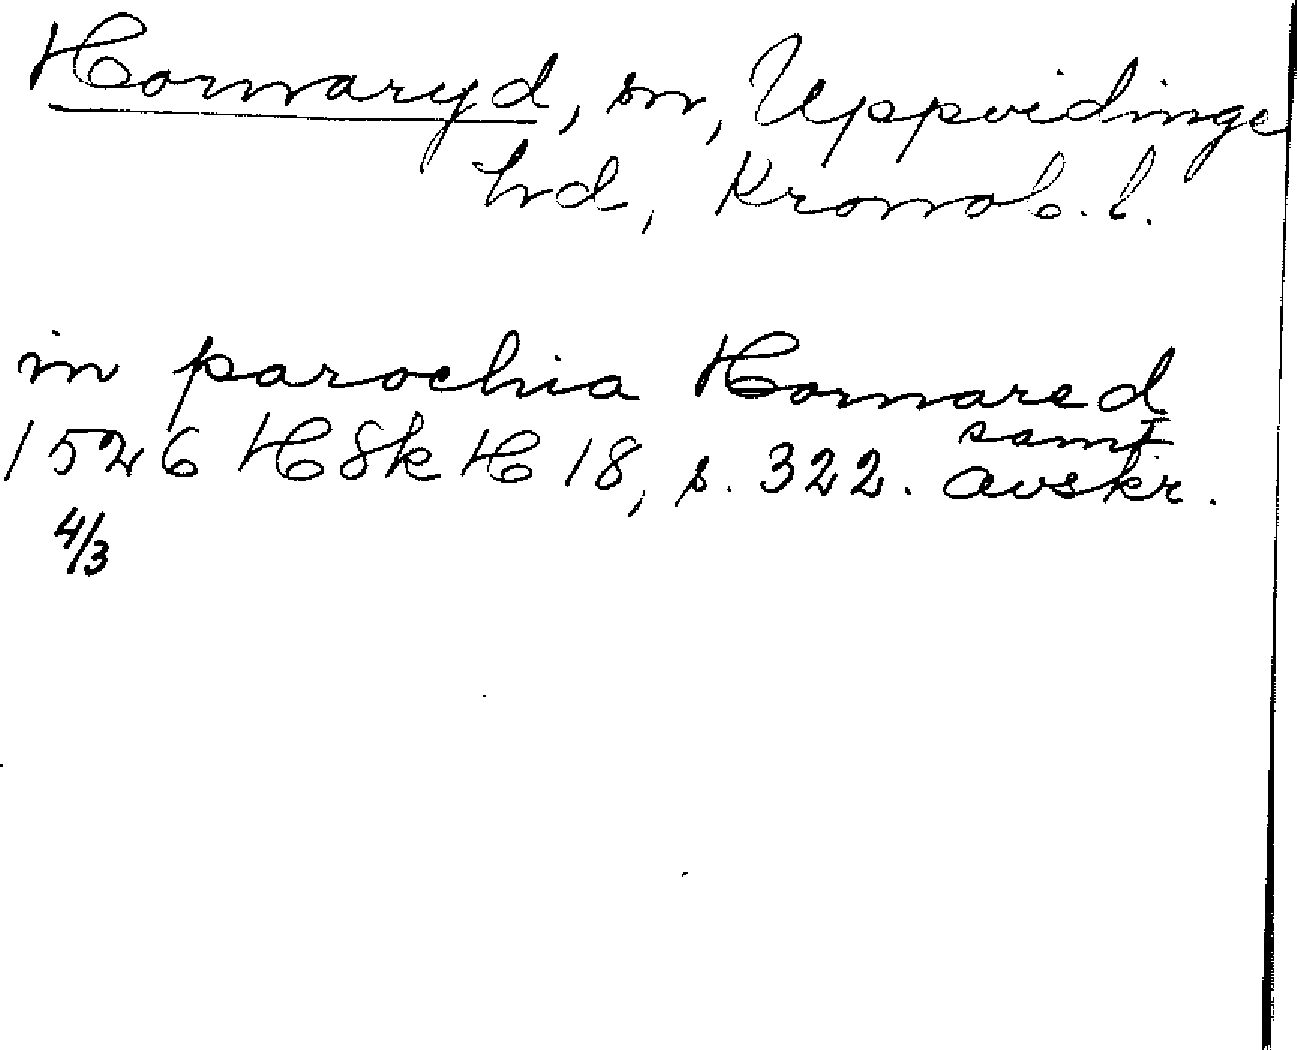 Hornaryd, sn, Uppvidinge
hd, Kronob. l.
in parochia Hornared
1526 HSkH 18, s. 322. samt. avskr.
4/3